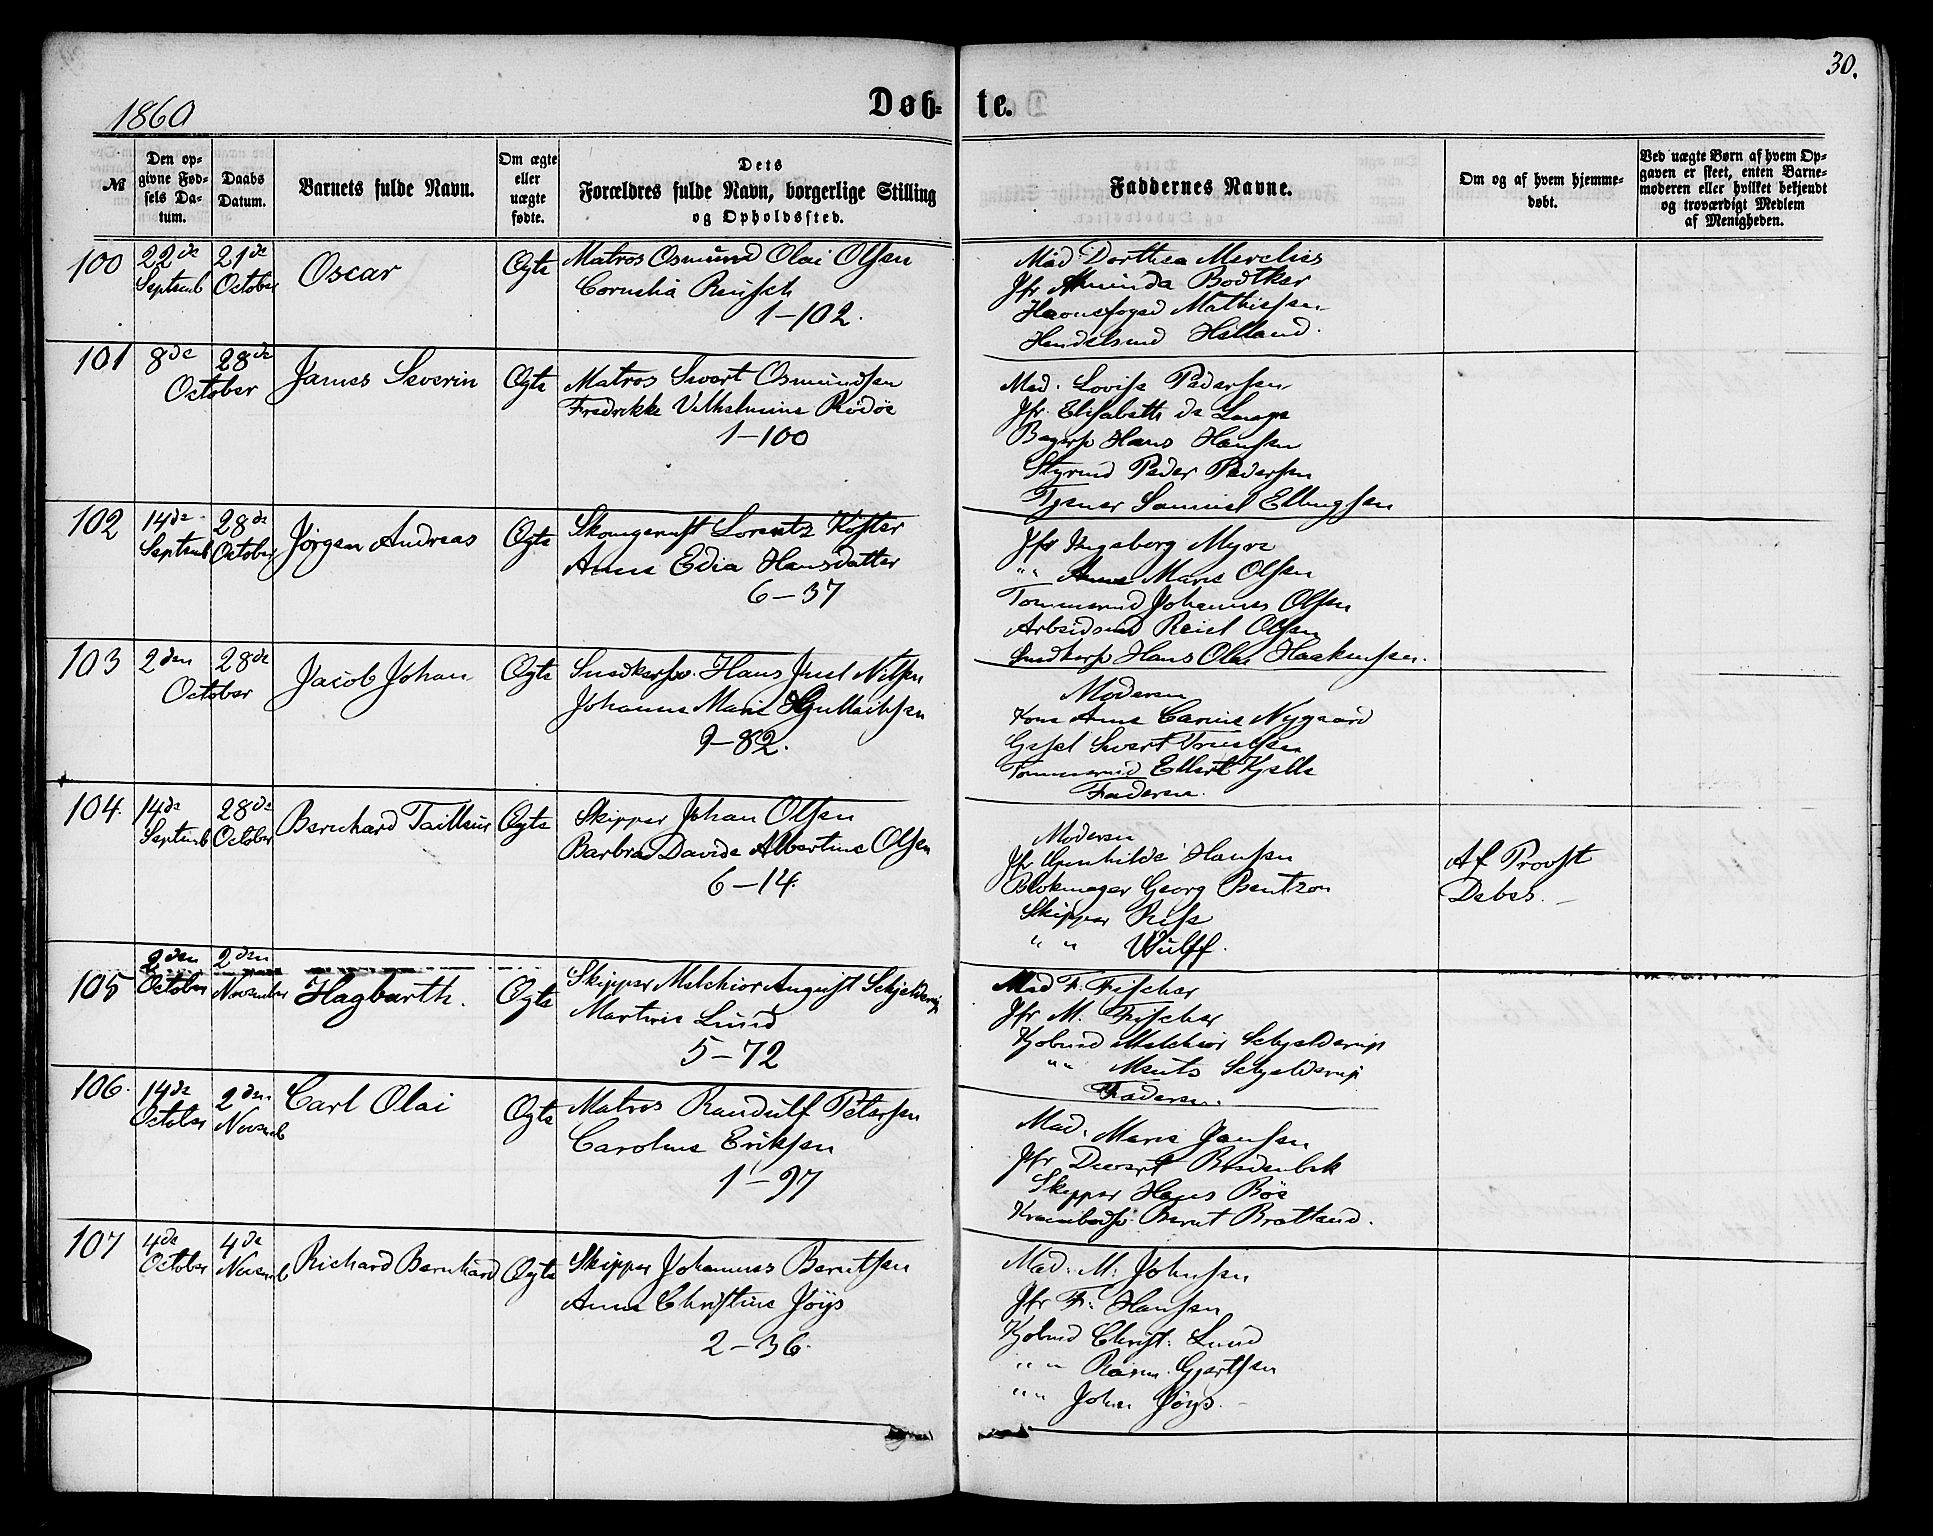 30.
1860
Døb= te.
№
Den op-
givne Fød-
sels Da-
tum.
Daabs
Datum.
Barnets fulde Navn.
Om ægte
eller
uægte
fødte.
Dets
Forældres fulde Navn, borgerlige Stilling
og Opholdssted.
Faddernes Navne.
Om og af hvem hjemme-
døbt.
Ved uægte Børn af hvem Op-
gaven er skeet, enten Barne-
moderen eller hvilket bekjendt
og troværdigt Medlem
af Menigheden.
100
22de
Septemb
21de
October
Oscar
Ægte
Matros Osmund Olai Olsen
Cornelia Reusch
1-102.
Mad Dorthea
Jfr Bødtker
Havnefoged Mathiesen
Helland.
101
8de
October
28de
James Severin
Ægte
Matros Svert Osmundsen
Fredrikke Vilhelmine Rödöe
1-100
Mad. Lovise Pedersen
Jfr. Elisabeth de Lange
Hans Hansen
Styrmd Peder Pedersen
Tjener Samuel Ellingsen
102
14de
Septemb
28de
October
Jörgen Andreas
Ægte
Lorentz Köster
Anne Edia Hansdatter
6-37
Jfr Ingeborg Myre
" " Anne Marie Olsen
Tømmermd Johannes Olsen
Arbeidsmd Olsen
Hans Olai Haakensen.
103
2den
October
28de
Jacob Johan
Ægte
Hans Juel Nilsen
Johanne Marie
9-82.
Moderen
Kone Anne Carine Nygaard
Gesel Svert
Tømmermd Ellert Kjelle
Faderen.
104.
14de
Septemb
28de
October
Bernhard Tailleur
Ægte
Skipper Johan Olsen
Barbra Davide Albertine Olsen
6-14.
Moderen
Jfr Gunhilde Hansen
Blokmager Georg Bentzon
Skipper Riise
" " Wulff.
Af Provst
Debes.
105
2den
October
2den
November
Hagbarth.
Ægte
Skipper Melchior August Schjelderup
Martine Lund
5-72
Mad F. Fischer
Jfr M. Fischer
Kjøbmd Melchior Schjelderup
" " Mentz Schjelderup
Faderen.
106.
14de
October
2den
Novemb
Carl Olai
Ægte
Matros Randulf Petersen
Caroline Eriksen
1-97
Mad. Marie Jansen
Jfr
Skipper Hans Böe
Berent Bratland.
107
4de
October
4de
Novemb
Richard Bernhard
Ægte
Skipper Johannes Berntsen
Anne Christine Jöys
2-36.
Mad. M. Johnsen
Jfr F. Hansen
Kjøbmd Christ: Lund
" " Rasm. Gjertsen
" " Johan Jöys.